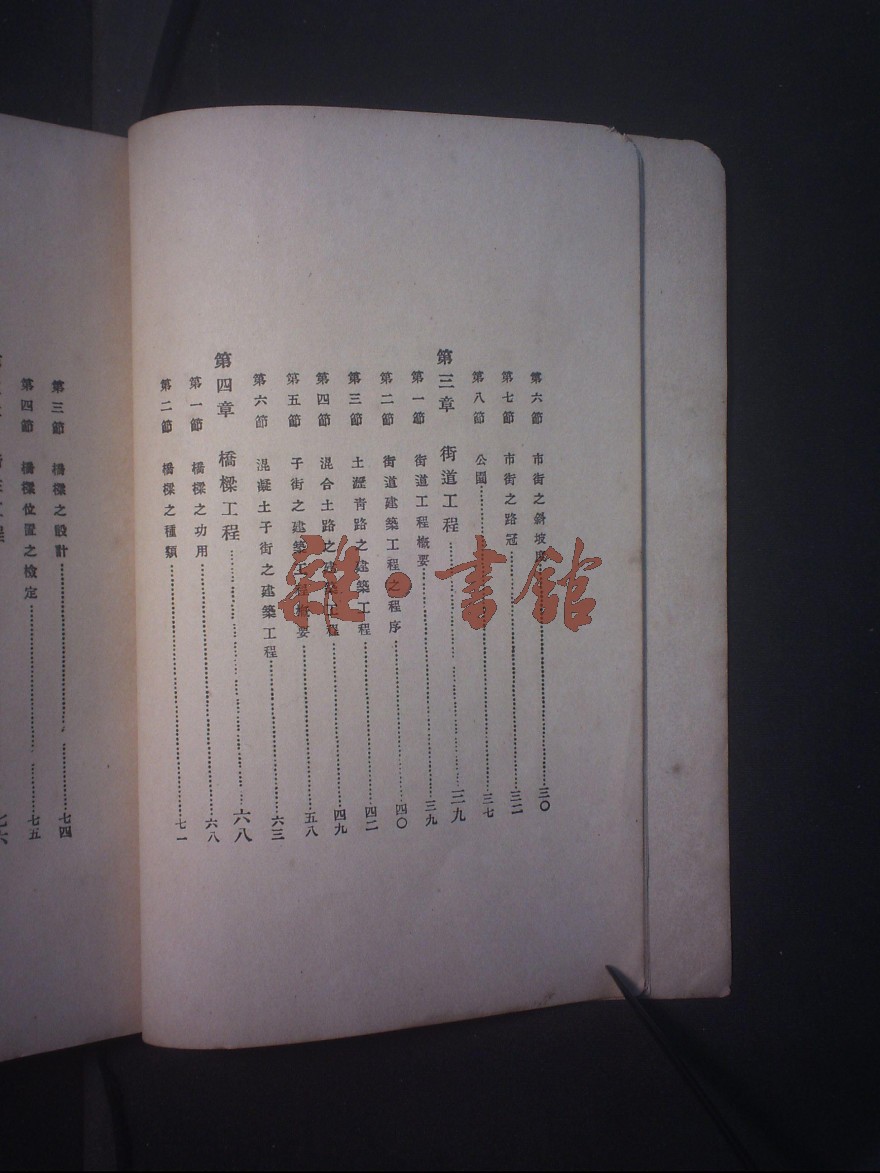 第六節 市街之斜坡度 三〇
第七節 市街之路冠 三二
第八節 公園 三七
第三章 街道工程 三九
第一節 街道工程概要 三九
第二節 街道建築工程之程序 四〇
第三節 土瀝青路之建築工程 四二
第四節 混合土路之建築工程 四九
第五節 子街之建築工程概要 五八
第六節 混凝土子街之建築工程 六三
第四章 橋樑工程 六八
第一節 橋樑之功用 六八
第二節 橋樑之種類 七一
第三節 橋樑之設計 七四
第四節 橋樑位置之檢定 七五
七六
雜·書館